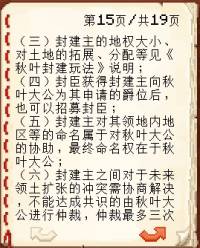 第15页/共19页
（三）封建主的地权大小、
对土地的拓展、分配等见《
秋叶封建玩法》说明；
（四）封臣获得封建主向秋
叶大公为其申请的爵位后，
也可以招募封臣；
（五）封建主对其领地内地
区等的命名属于对秋叶大公
的协助，最终命名权在于秋
叶大公；
（六）封建主之间对于未来
领土扩张的冲突需协商解决
，不能达成共识的由秋叶大
公进行仲裁，仲裁最多三次